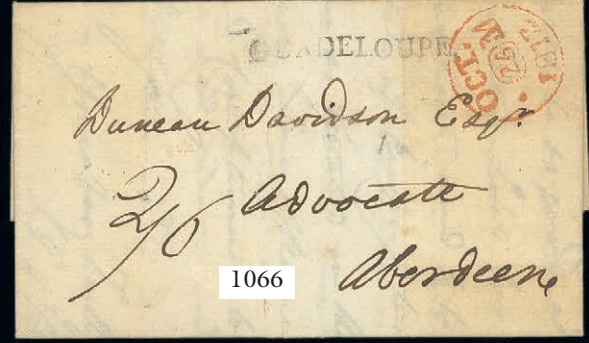 GUADELOUPE
OCT M 25 1812
Duncan Davidson Esqr.
2/6 Advocate
Aberdeen
1066